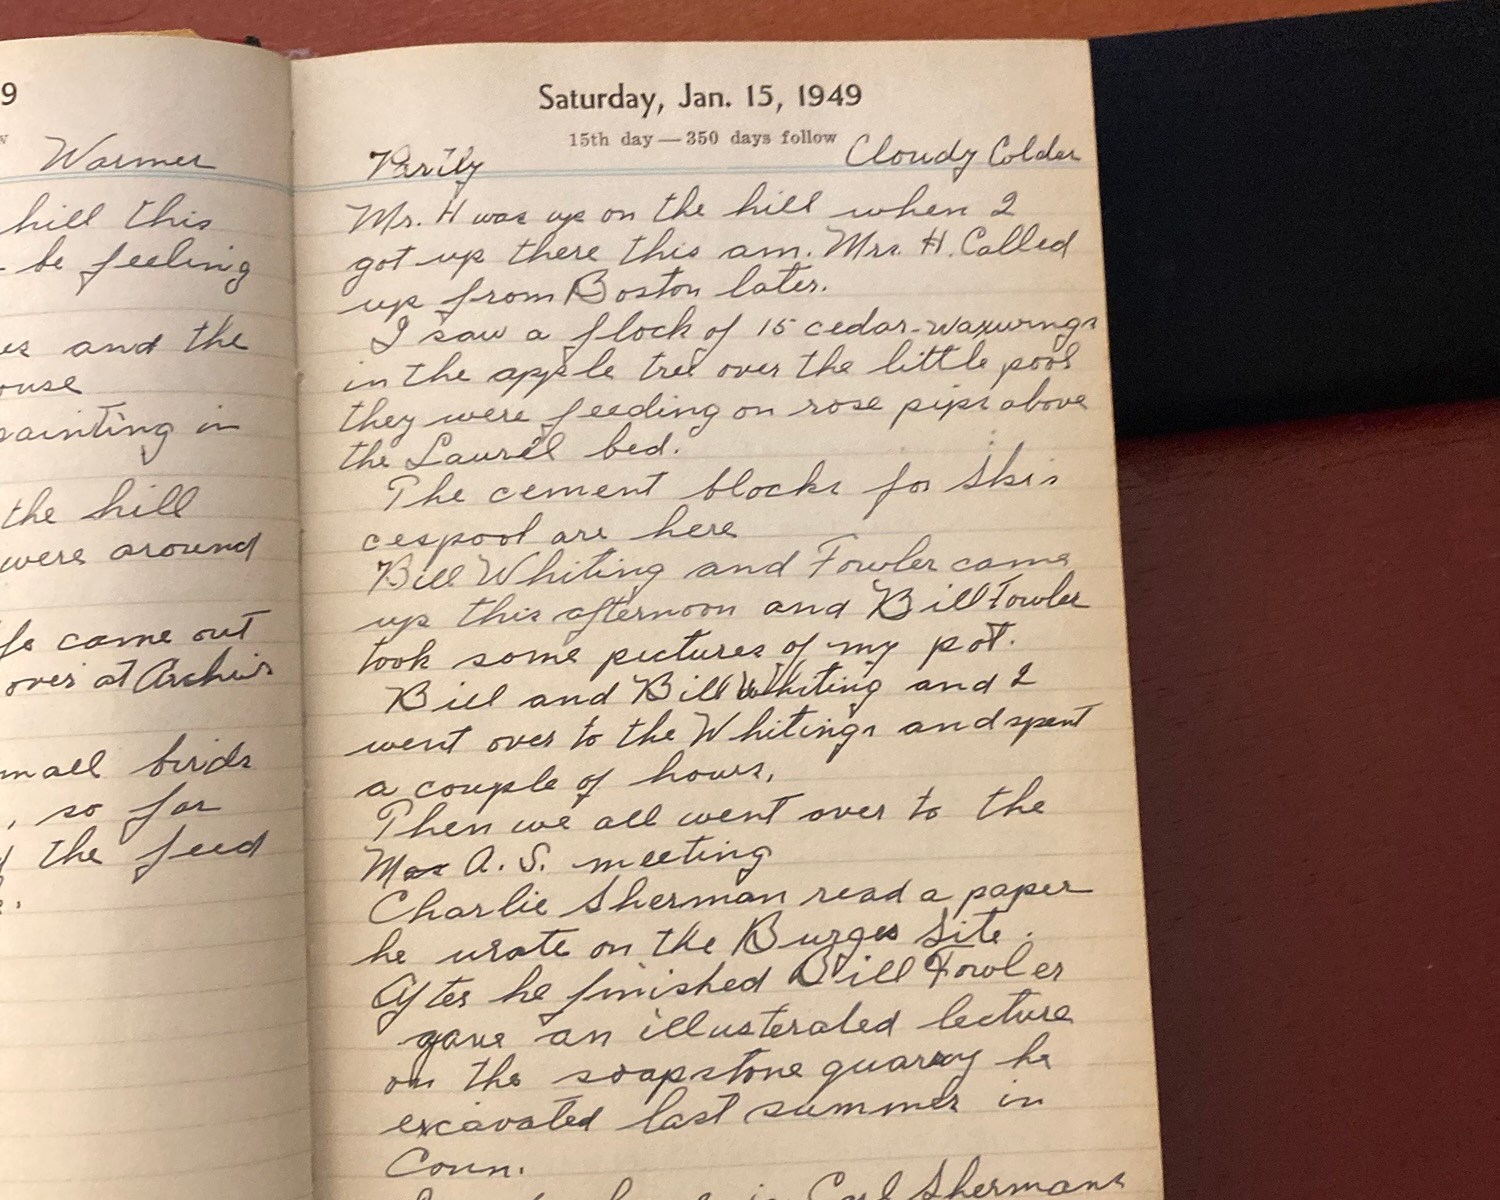 9
Warmer
hill this
be feeling
es and the
ouse
painting in
the hill
were around
fe came out
over at Archie's
mall birds
, so far
the feed
Saturday, Jan. 15, 1949
15th day — 350 days follow
Partly Cloudy Colder
Mr. H was up on the hill when I
got up there this am. Mrs. H. Called
up from Boston later.
I saw a flock of 15 cedar-waxwings
in the apple tree over the little pool
they were feeding on rose pips above
the Laurel bed.
The cement blocks for Ski's
cespool are here
Bill Whiting and Fowler came
up this afternoon and Bill Fowler
took some pictures of my pot.
Bill and Bill Whiting and I
went over to the Whitings and spent
a couple of hours,
Then we all went over to the
Mas A. S. meeting
Charlie Sherman read a paper
he wrote on the Burges Site.
After he finished Bill Fowler
gave an illusterated lecture
on the soapstone quarry he
excavated last summer in
Conn.
in Carl Shermans